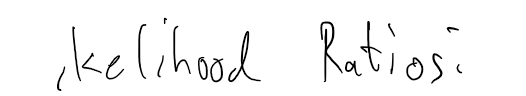 ikelihood Ratios: